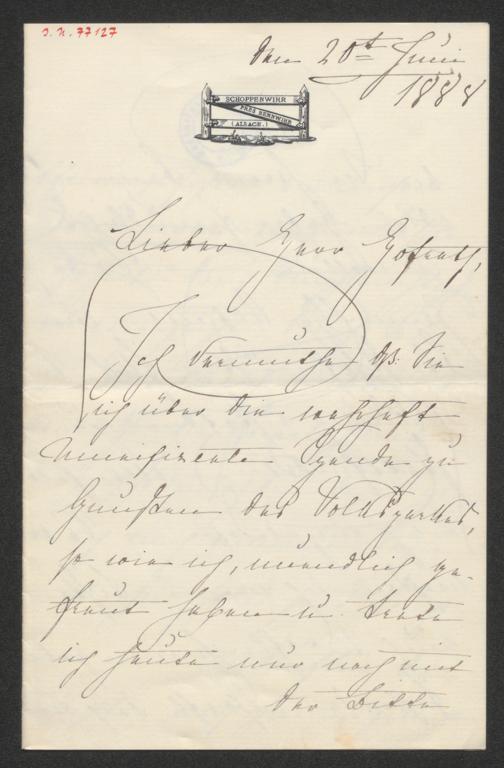 J. N. 77127
den 20ten Juni
1888
SCHOPPENWIHR
PRES BENNWIHR
(ALSACE.)
Lieber Herr Hofrath,
Ich vermuthe dß. Sie
sich über die wahrhaft
munifizente Spende zu
Gunsten des Volksgartens,
so wie ich, unendlich ge-
freut haben u. trete
ich heute nur noch mit
der Bitte